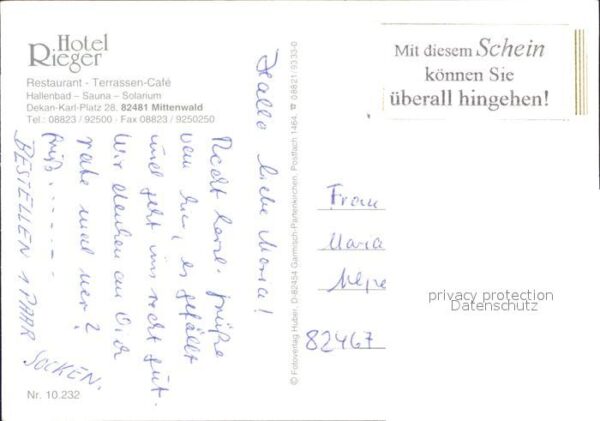 Hotel
Rieger
Restaurant - Terrassen-Café
Hallenbad – Sauna – Solarium
Dekan-Karl-Platz 28, 82481 Mittenwald
Tel.: 08823 / 92500 · Fax 08823 / 9250250
Hallo liebe Maria!
Recht herzl. Grüße
von hier, es gefällt
und geht uns recht gut.
Wir denken an Dich
rate mal wer?
BESTELLEN 1 PAAR
SOCKEN.
Nr. 10.232
© Fotoverlag Huber, D-82454 Garmisch-Partenkirchen, Postfach 1464, ☎ 08821/9333-0
Mit diesem Schein
können Sie
überall hingehen!
Frau
Maria
82467
privacy protection
Datenschutz